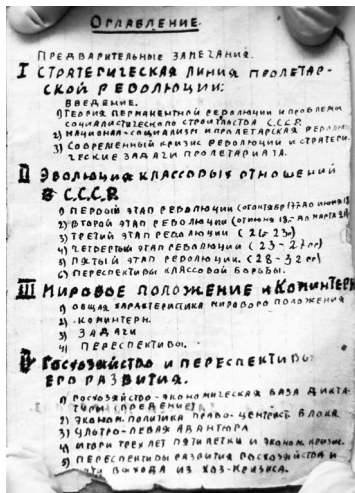 Оглавление.
Предварительные замечания.
I Стратегическая линия пролетар-
ской революции:
Введение.
1) Теория перманентной революции и проблемы
социалистического строительства С.С.С.Р.
2) Национал-социализм и пролетарская револю
3) Современный кризис революции и стратеги-
ческие задачи пролетариата.
II Эволюция классовых отношений
в С.С.С.Р.
1) Первый этап революции (от октября 17 г. до июня 18
2) Второй этап революции (от июня 18 г.- до марта 21
3) Третий этап революции (21-23 гг)
4) Четвертый этап революции (23-27 гг)
5) Пятый этап революции. (28-32 гг)
6) Переспективы классовой борьбы.
III Мировое положение и Коминтерн
1) Общая характеристика мирового положения
2) Коминтерн.
3) Задачи
4) Переспективы.
IV Госхозяйство и переспективы
его развития.
1) Госхозяйство-экономическая база дикта-
туры (введение)
2) Эконом. политика право-центрист. блока
3) Ультро-левая авантюра
4) Итоги трех лет пятилетки и эконом. кризис.
5) Переспективы развития госхозяйства и
пути выхода из хоз-кризиса.